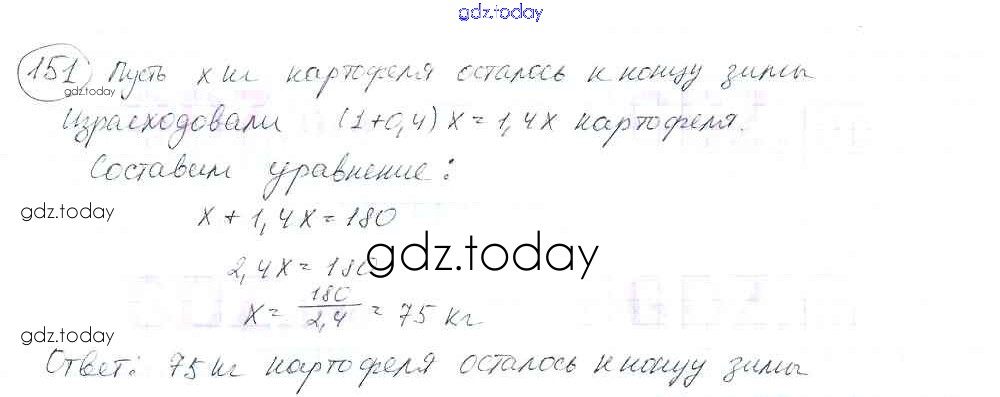 gdz.today
151 Пусть x кг картофеля осталось к концу зимы
gdz.today
Израсходовали (1+0,4)x=1,4x картофеля.
Составим уравнение:
gdz.today
x+1,4x=180
gdz.today
2,4x=180
x=180/2,4=75 кг
gdz.today
Ответ: 75 кг картофеля осталось к концу зимы